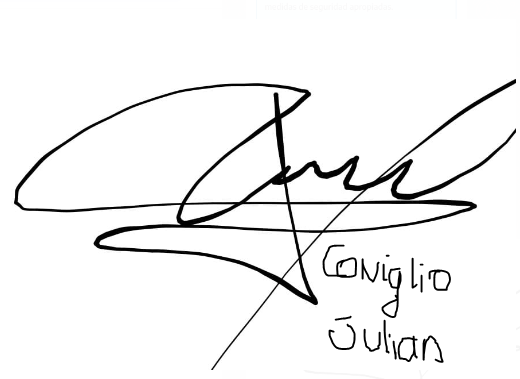 Coniglio
Julian